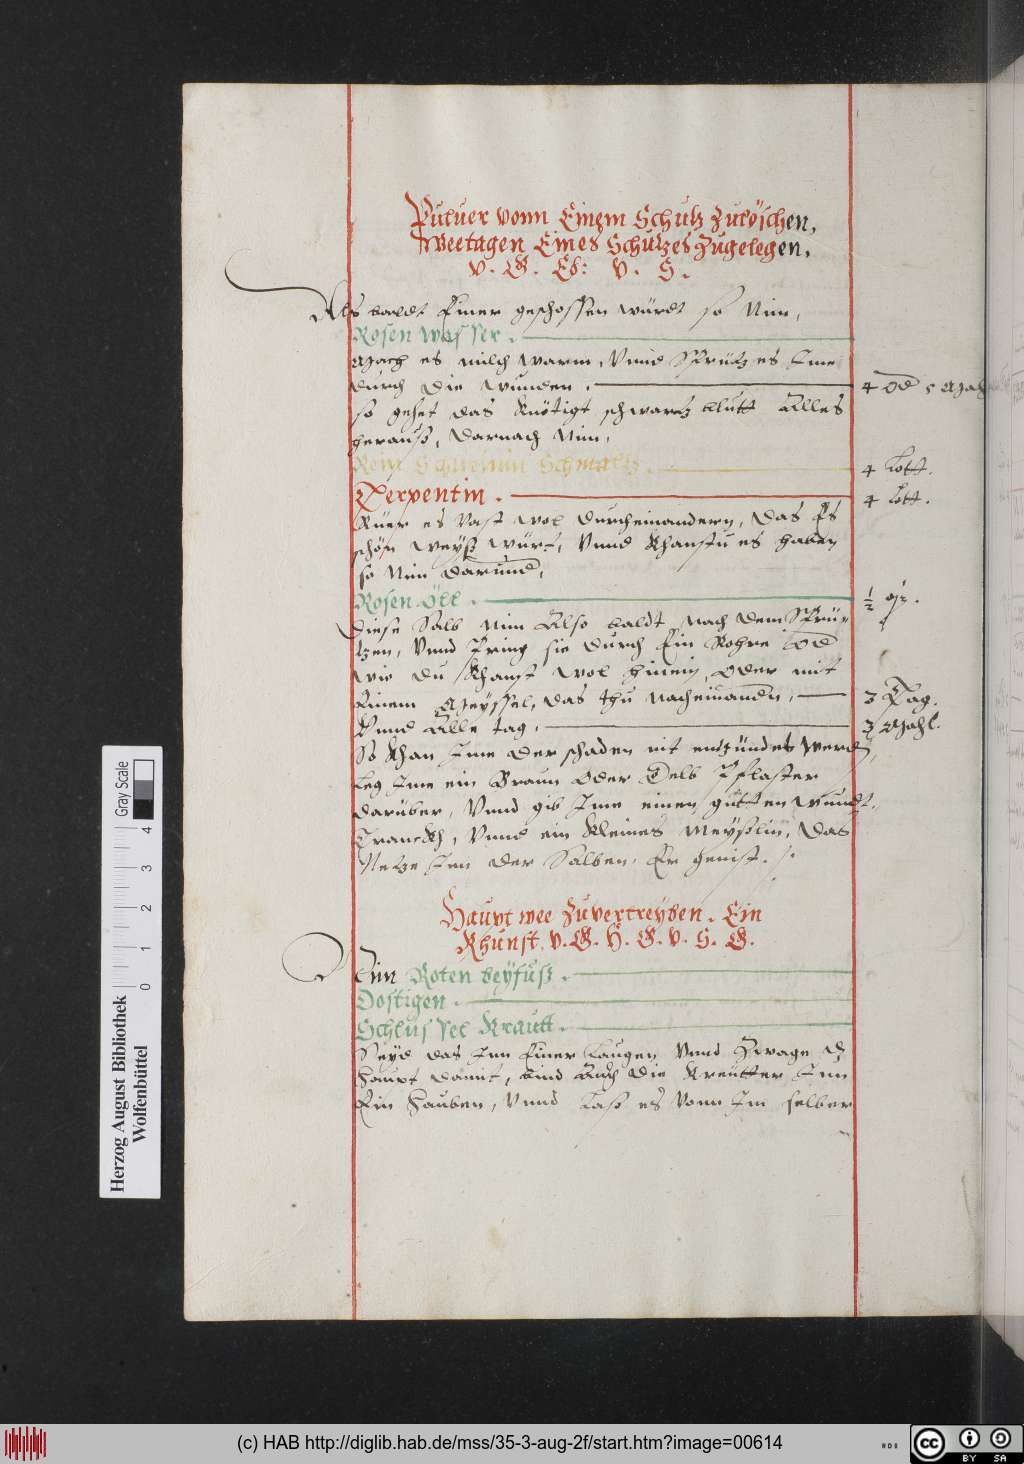 Puluer vonn Einem Schutz zulöschen,
Weetagen Eines Schutzes zugelegen,
v. G. Ed: v. S.
Als baldt Einer geschossen würdt so Nim,
Rosen wasser.
Mach es milch warm, Vnnd Sprütz es Ime
durch die wunden. 4 od 5 Mahl
so gehet das Knötigt schwartz blutt Alles
herauß, darnach Nim,
Rein Schmaltz. 4 Lott.
Terpentin. 4 Lott.
Rüer es Vast wol durcheinandern, das Es
schön weyß würt, Vnnd Khanstu es haben
so Nim darunnd,
Rosen Öll. ½
Diese Salb Nim Also baldt, Nach dem Sprü-
tzen, Vnnd Bring sie durch Ein Rohre od
wie du Khanst wol hinein, Oder mit
Einem Meyssel, das thu nacheinandn, 3 Tag.
Vnnd Alle tag, 3 Mahl.
So Khan Ime der schaden nit entzündet werdn,
leg Ime ein Braun Oder Gelb Pflaster
darüber, Vnnd gib Ime einen gutten Wundt
Tranckh, Vnnd ein Kleines Meyßlin, das
Netze Inn der Salben, Er genist.
Haupt wee Zuvertreyben. Ein
Khunst. v. G. H. G. v. S. G.
Ein Roten beyfuß.
Dostigen.
Schlussel Krautt.
Seyd das Inn Einer Laugen Vnnd Zwage dz
Haupt damit, bind Auch die Kreutter Inn
Ein Hauben, Vnnd Laß es Vonn Im selber
Herzog August Bibliothek
Wolfenbüttel
0 1 2 3 4 Gray Scale
(c) HAB http://diglib.hab.de/mss/35-3-aug-2f/start.htm?image=00614
cc BY SA